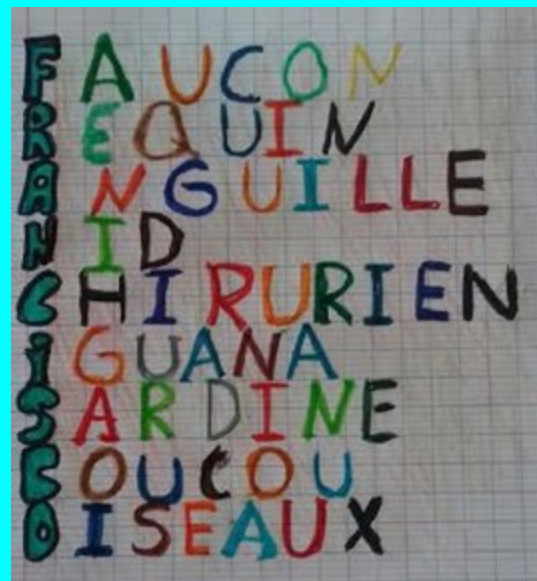 FAUCON
REQUIN
ANGUILLE
NID
CHIRURIEN
iGUANA
SARDINE
COUCOU
OISEAUX